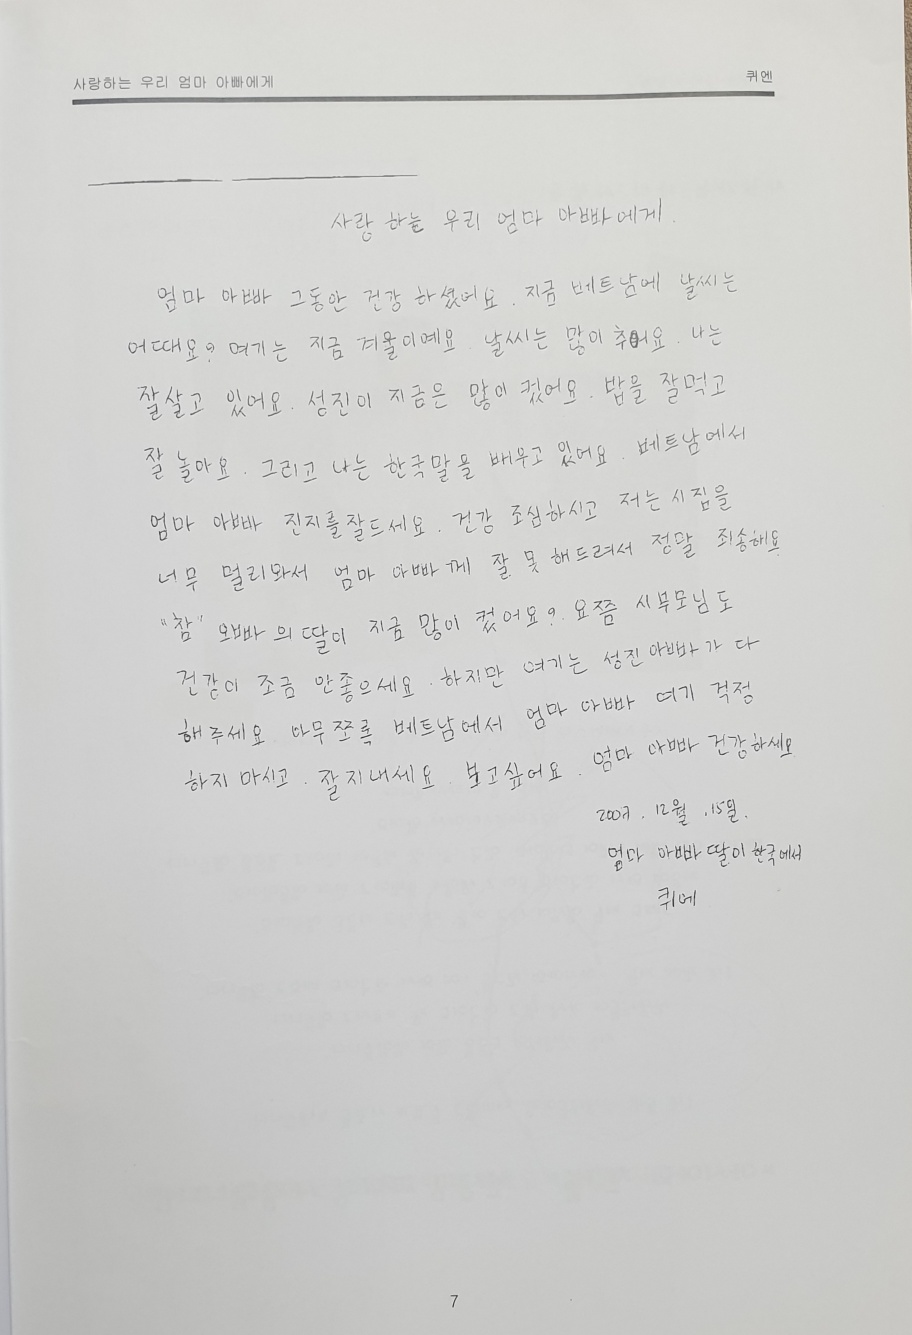 사랑하는 우리 엄마 아빠에게
퀴엔
사랑 하는 우리 엄마 아빠에게.
엄마 아빠 그동안 건강 하셨어요. 지금 베트남에 날씨는
어때요? 여기는 지금 겨울이예요. 날씨는 많이 추어요. 나는
잘살고 있어요. 성진이 지금은 많이 컸어요. 밥을 잘먹고
잘 놀아요. 그리고 나는 한국말을 배우고 있어요. 베트남에서
엄마 아빠 진지를잘드세요. 건강 조심하시고 저는 시집을
너무 멀리와서 엄마 아빠께 잘 못 해드려서 정말 죄송해요
"참" 오빠의 딸이 지금 많이 컸어요?. 요쯤 시부모님도
건강이 조금 안좋으세요. 하지만 여기는 성진아빠가 다
해주세요. 아무쪼록 베트남에서 엄마 아빠 여기 걱정
하지 마시고. 잘지내세요. 보고싶어요. 엄마 아빠 건강하세요
2007. 12월 .15일.
엄마 아빠 딸이 한국에서
퀴에
7